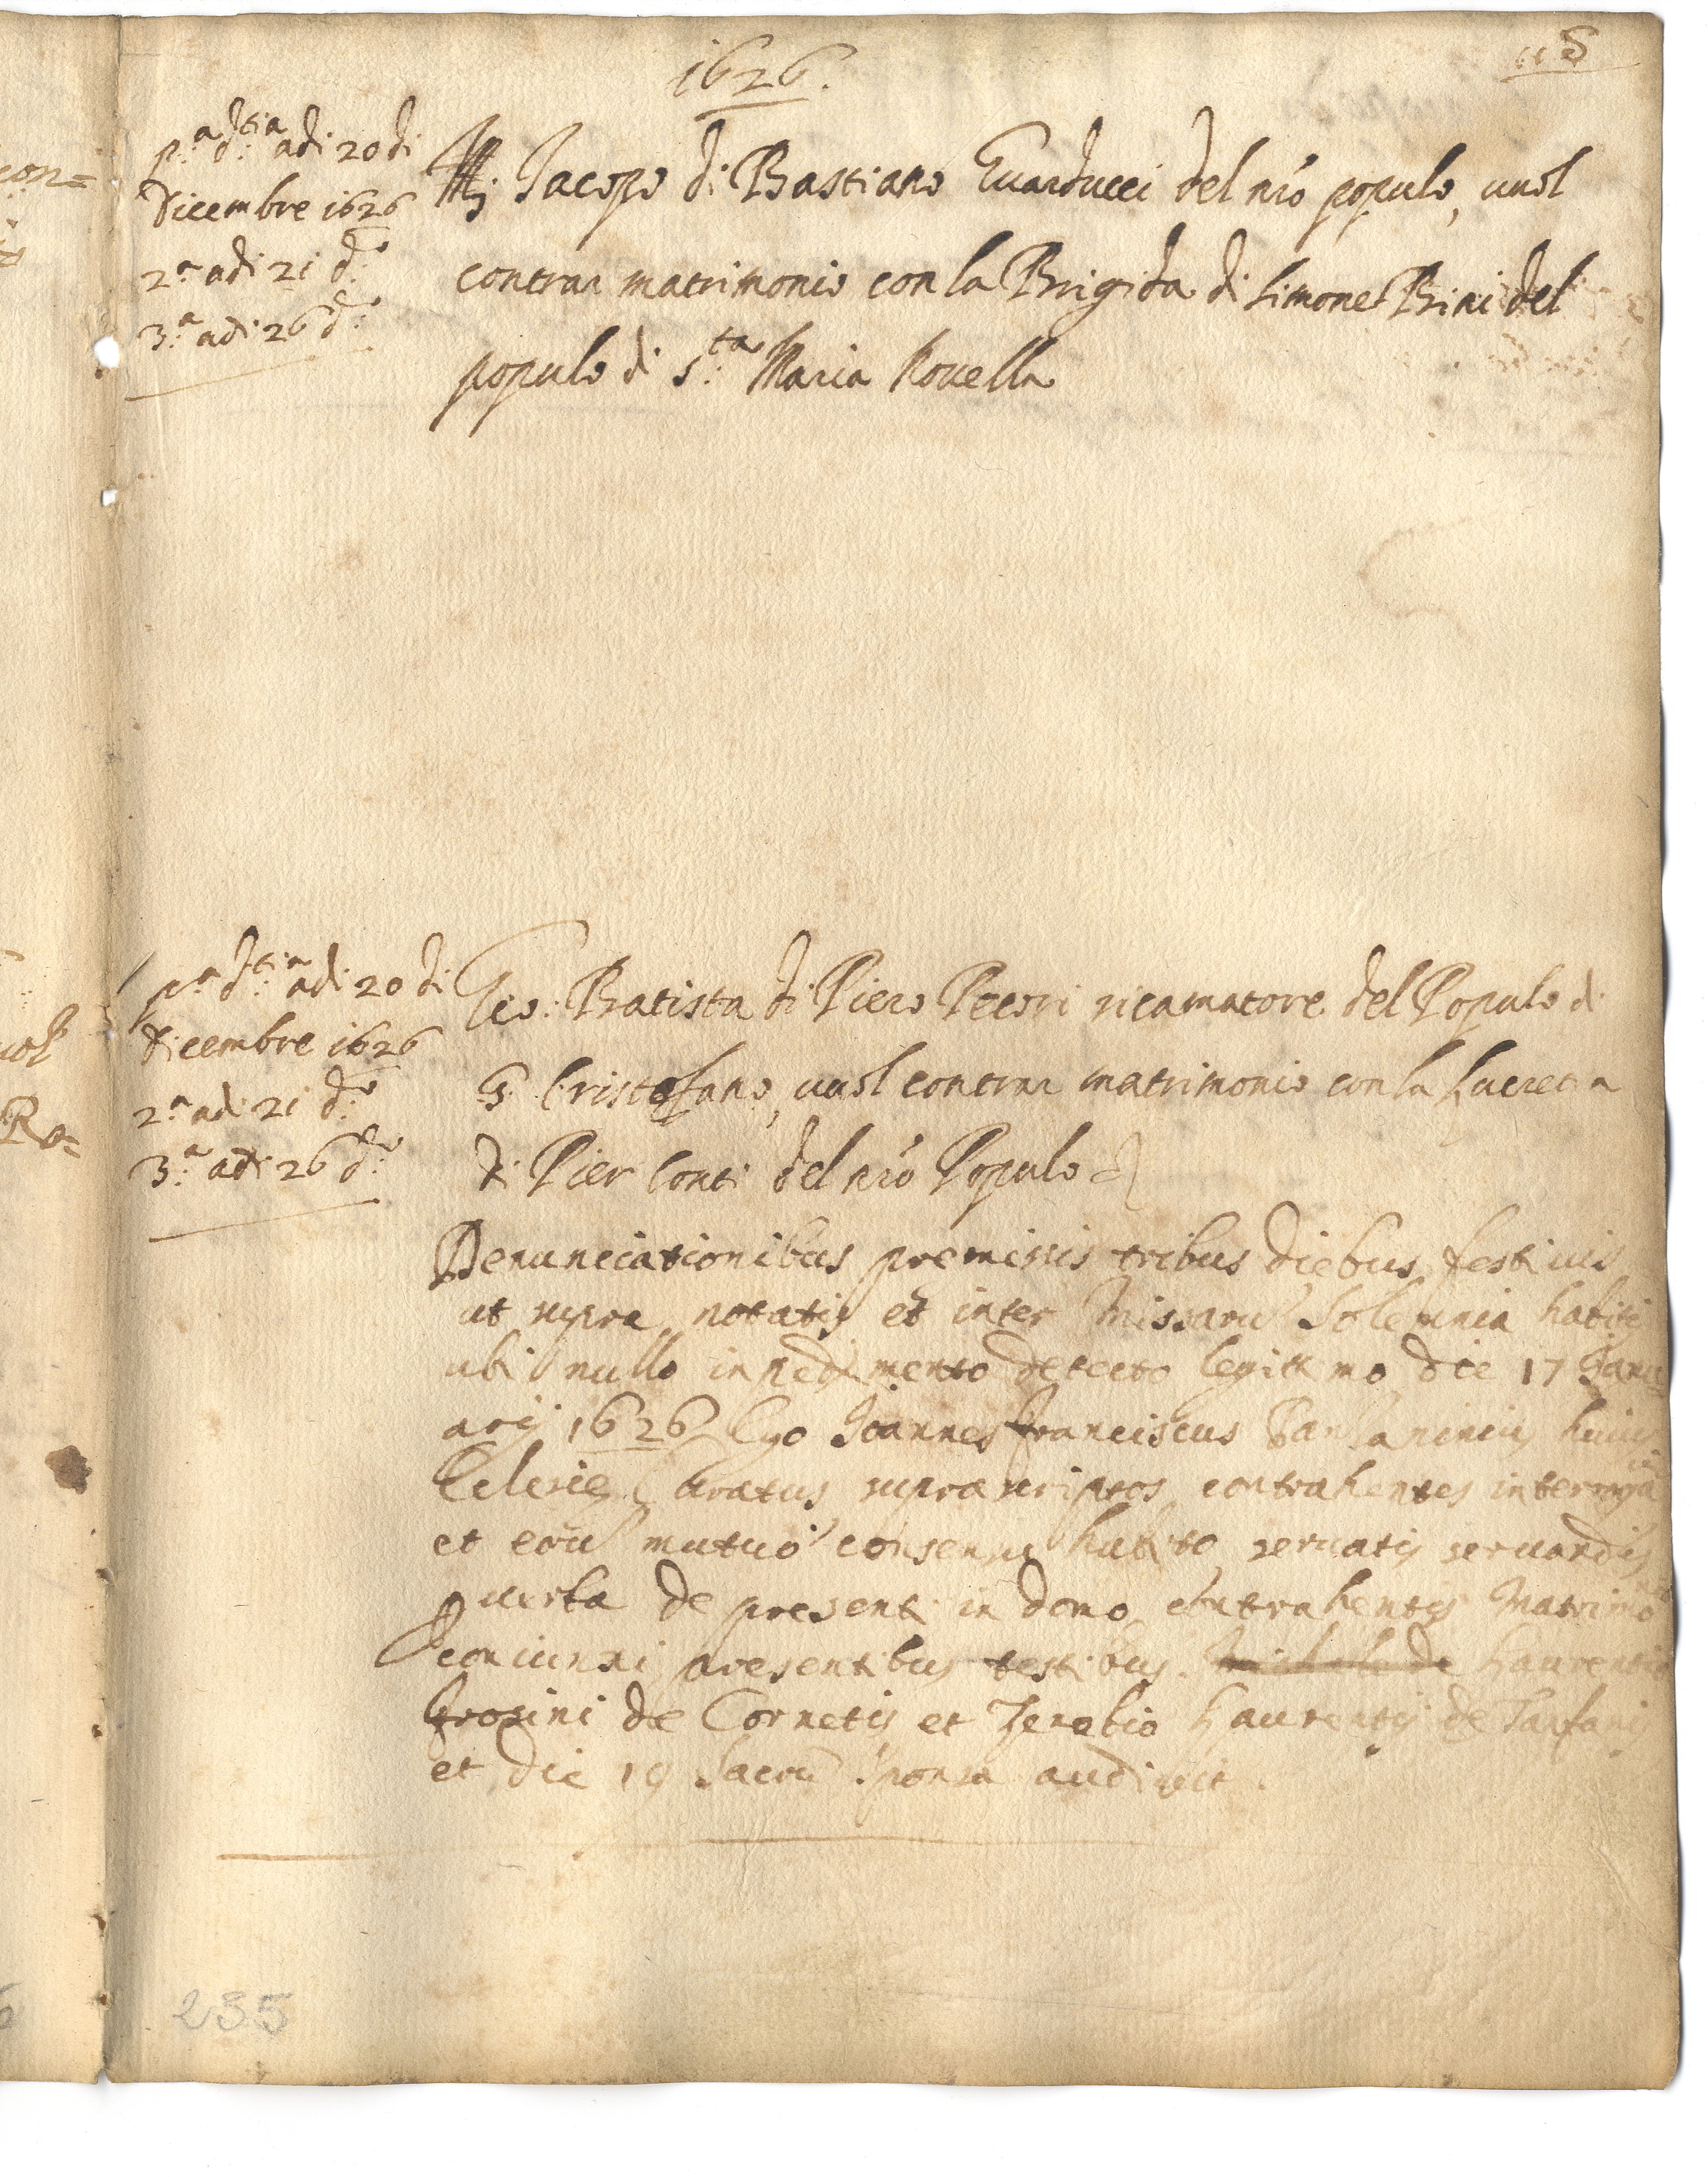 1626.
115
p.a d.tia adi 20 di
Dicembre 1626
2.a adi 21 d.o
3.a adi 26 d.o
Jacopo di Bastiano Guarducci del nro populo, uuol
contrar matrimonio con la Brigida di Simone Bini del
populo di S.ta Maria Nouella
p.a d.tia adi 20 di
Dicembre 1626
2.a adi 21 d.o
3.a adi 26 d.o
Gio: Batista di Piero Pecori ricamatore del Populo di
S. Cristofano, uuol contrar matrimonio con la Lucretia
di Pier Conti del nro Populo
Denunciationibus premissis tribus diebus festiuis
ut supra notatis et inter Missaru Solemnia habitis
ubi nullo inpedimento detecto legittimo die 17 Janu
arij 1626 Ego Joannes Franciscus huius
Eclesie Curatus suprascriptos contrahentes
et eoru mutuo consensu habito seruatis seruandis
p uerba de presenti in domo contrahentis Matrimo
coniunxi presentibus testibus Laurentio
Grosini de Cornetis et Zenobio Laurentij de
et die 19 Sacru sponsa audiuit.
235
con=
uol
Ro=